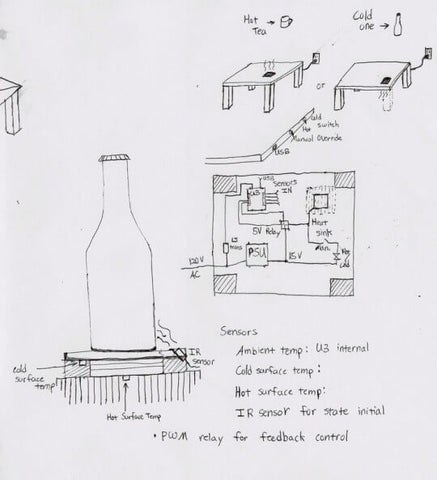 Hot
Tea
Cold
one
or
Cold
Hot switch
Manual Override
USB
USB
U3
Sensors
IN
5V Relay
Heat
sink
120V
AC
PSU
15V
Hot
Cold
IR
Sensor
Cold
surface
temp
Hot Surface Temp
Sensors
Ambient temp: U3 internal
Cold surface temp:
Hot surface temp:
IR sensor for state initial
• PWM relay for feedback control